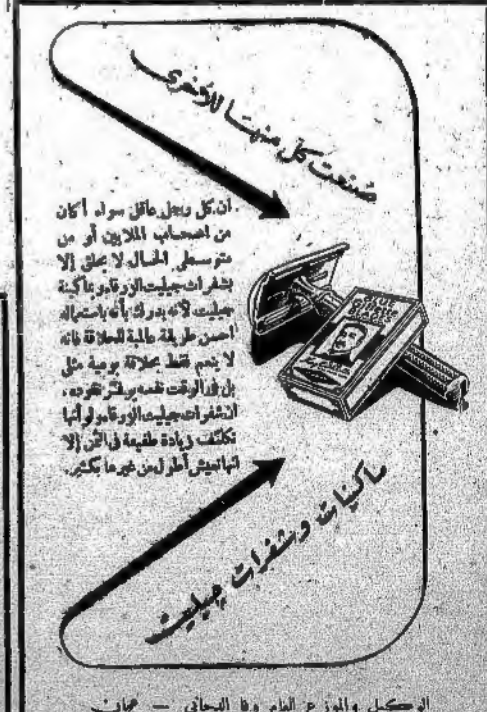 صنعت كل منها للأخرى
ان كل رجل عاقل سواء أكان
من اصحاب الملايين أو من
متوسطي الحال لا يحلق إلا
بشفرات جيليت الزرقاء وماكينة
جيليت لأنه يدرك بأنه باستعماله
احسن طريقة عالمية للحلاقة فانه
لا ينعم فقط بحلاقة يومية مثلى
بل في الوقت نفسه يوفر نقوده.
ان شفرات جيليت الزرقاء ولو أنها
تكلف زيادة طفيفة في الثمن إلا
انها تعيش أطول من غيرها بكثير.
BLUE
GILLETTE
BLADES
ماكينات وشفرات جيليت
الوكيل والموزع العام وفا الدجاني — عمان